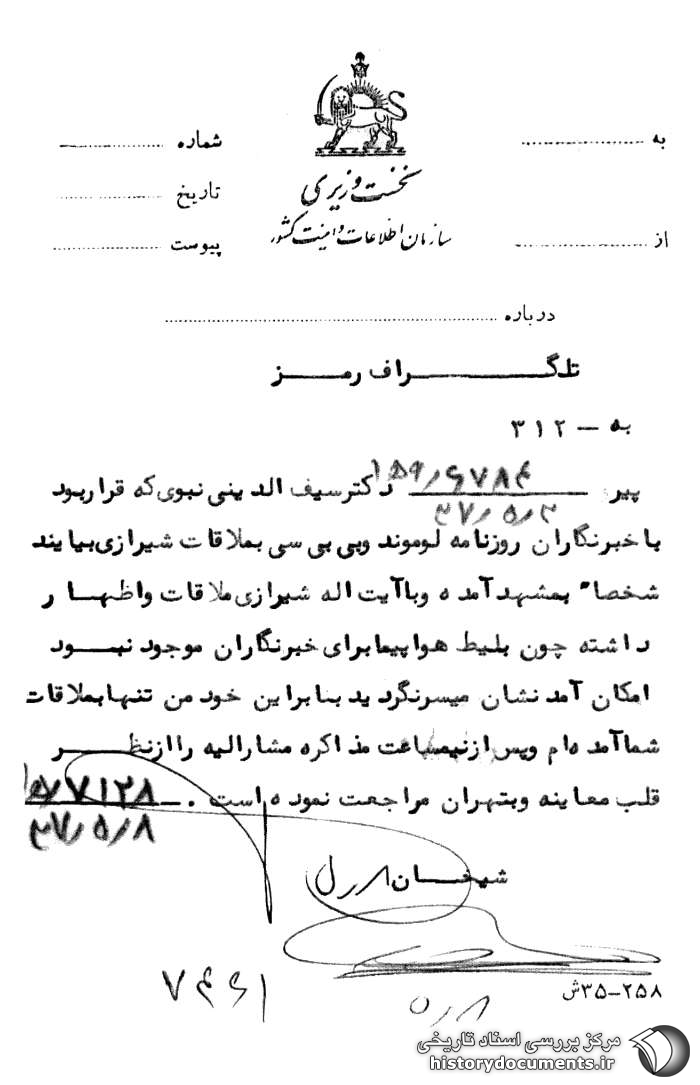 به ........................ شماره ........................
نخست وزیری
تاریخ ........................
سازمان اطلاعات و امنیت کشور
از ........................ پیوست ........................
درباره ........................
تلگـــراف رمـــز
به – ۳۱۲
پیرو دکترسیف الدینی نبوی که قراربود
۳۷/۵/۲
با خبرنگاران روزنامه لوموند وبی بی سی بملاقات شیرازی بیایند
شخصا" بمشهد آمده وباآیت اله شیرازی ملاقات واظهــار
داشته چون بلیط هواپیما برای خبرنگاران موجود نبـــود
امکان آمدنشان میسرنگردید بنابراین خودمن تنهابملاقات
شماآمده‌ام وپس ازنیمساعت مذاکره مشارالیه راازنظـــر
قلب معاینه وبتهران مراجعت نموده است .
۷۱۲۸
۳۷/۵/۸
شیخـــان
۵/۸
۳۵-۲۵۸ش
مرکز بررسی اسناد تاریخی
historydocuments.ir